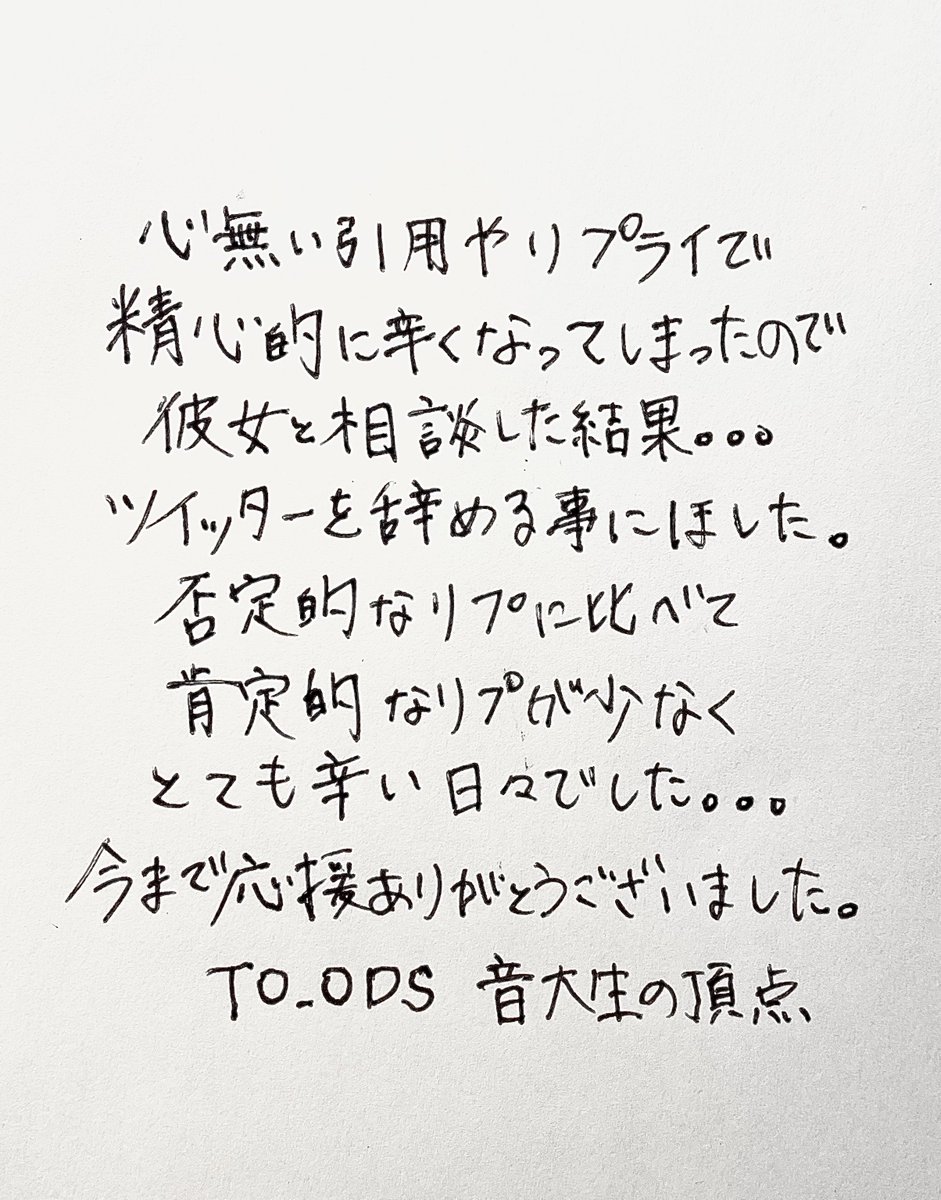 心無い引用やリプライで
精心的に辛くなってしまったので
彼女と相談した結果。。。
ツイッターを辞める事にほました。
否定的なリプに比べて
肯定的なリプが少なく
とても辛い日々でした。。。
今まで応援ありがとうございました。
TO_ODS 音大生の頂点